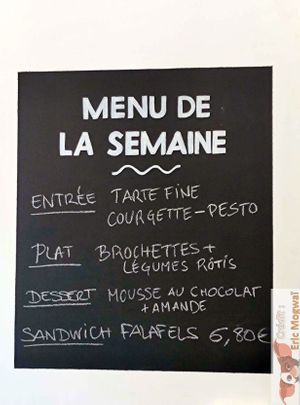 MENU DE
LA SEMAINE
ENTRÉE TARTE FINE
COURGETTE-PESTO
PLAT BROCHETTES +
LÉGUMES RÔTIS
DESSERT MOUSSE AU CHOCOLAT
+ AMANDE
SANDWICH FALAFELS 6,80€
Crédit :
Eric Mogwaï